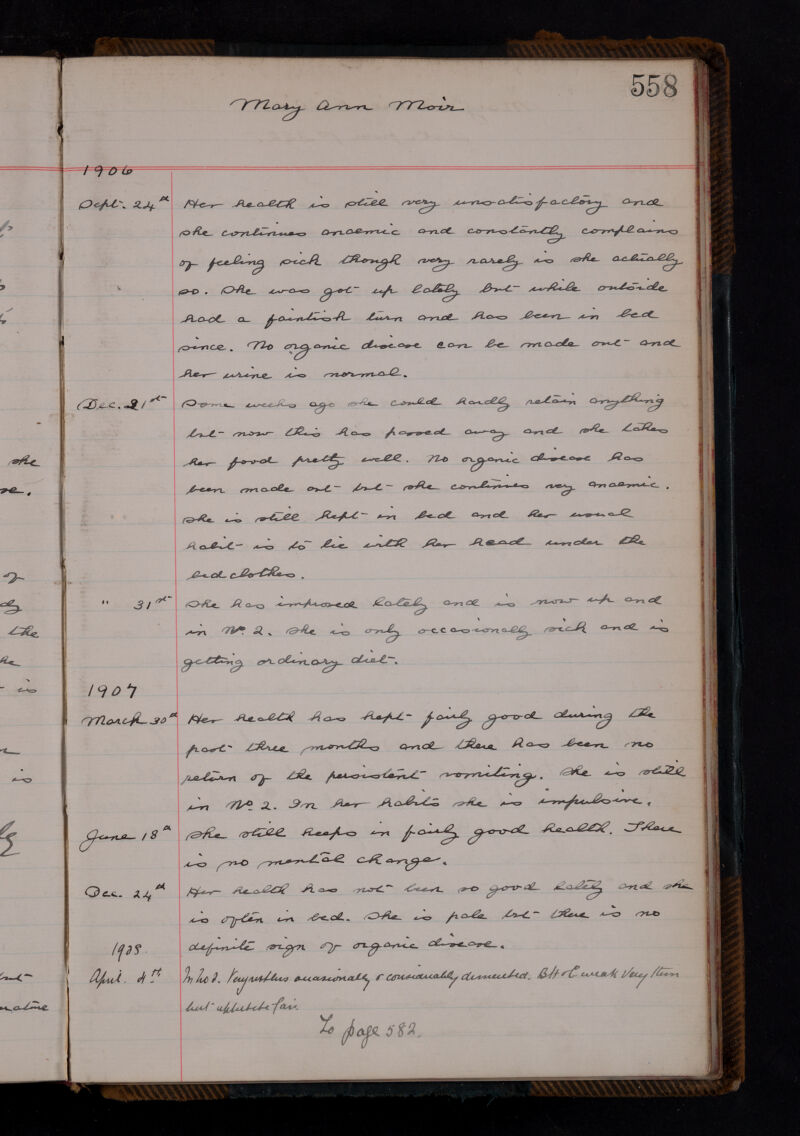 558
Mary Ann Moir
1906
Sept. 24th Her health is still very unsatisfactory and
she continues anaemic and constantly complains
of feeling sick though very rarely is she actually
so. She was got up lately but while outside
had a faintish turn and has been in bed
since. No organic disease can be made out and
her urine is normal.
Dec. 21st Some weeks ago she could hardly retain anything
but now this has passed away and she takes
her food pretty well. No organic disease has
been made out but she continues very anaemic.
She is still kept in bed and her usual
habit is to lie with her head under the
bedclothes.
" 31st She has improved lately and is now up and
in No. 2. She is only occasionally sick and is
getting ordinary diet.
1907
March 30th Her health has kept fairly good during the
past three months and there has been no
return of the persistent vomiting. She is still
in No. 2. In her habits she is impulsive.
June 18th She still keeps in fairly good health. There
is no mental change.
Dec. 24th Her health has not been so good lately and she
is often in bed. She is pale but there is no
1908. definite sign of organic disease.
April. 4th In No 2. Very restless occasionally & considerably demented. B H & C weak Very thin
but appetite fair.
To page 582.
she
se.
of
the
he
is
is
but
nature